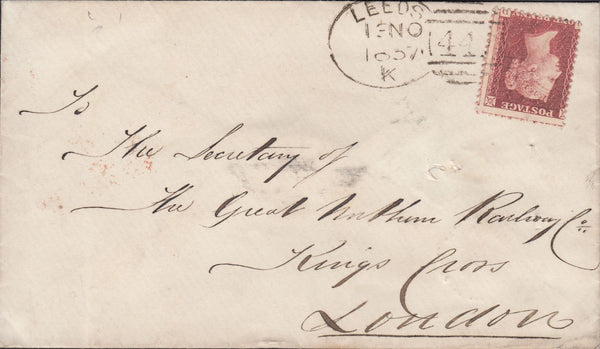 LEEDS
13NO
1857
K
447
POSTAGE
To
The Secretary of
The Great Northern Railway Co
Kings Cross
London